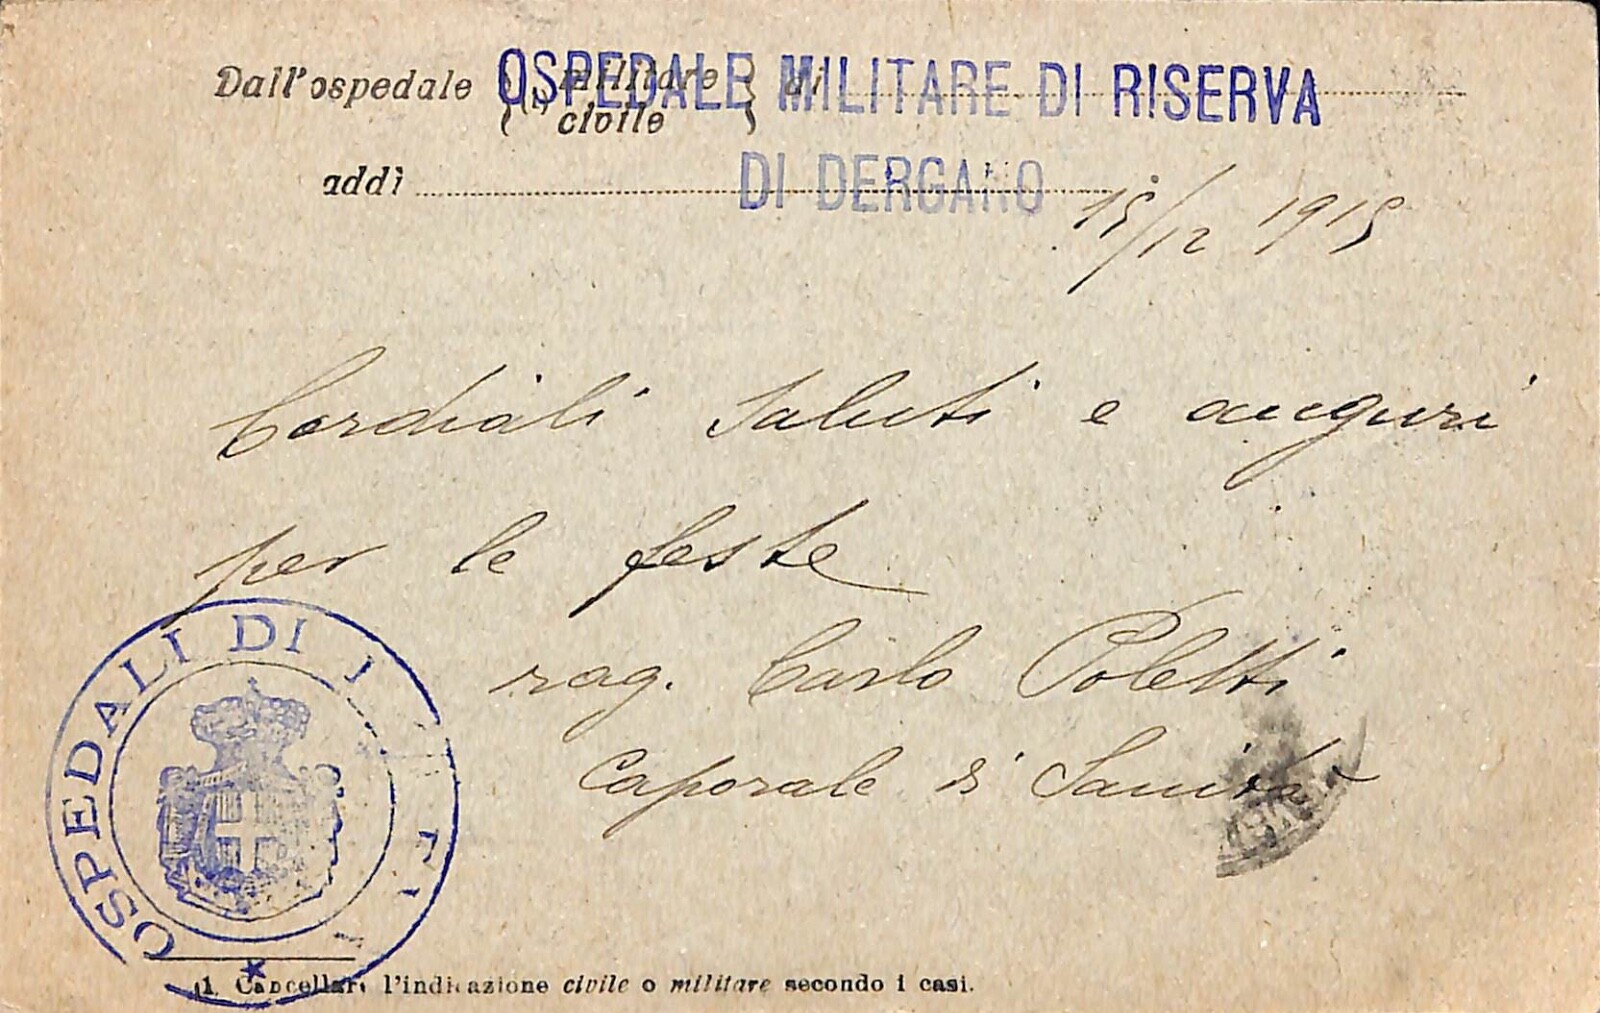 Dall'ospedale (1) militare civile di
OSPEDALE MILITARE DI RISERVA
addì
DI DERGANO
15/12 1915
Cordiali saluti e auguri
per le feste
rag. Carlo Poletti
Caporale di Sanità
OSPEDALI DI
1. Cancellare l'indicazione civile o militare secondo i casi.